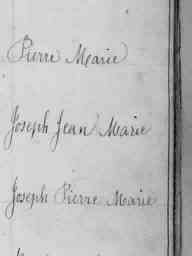 Pierre Marie
Joseph Jean Marie
Joseph Pierre Marie